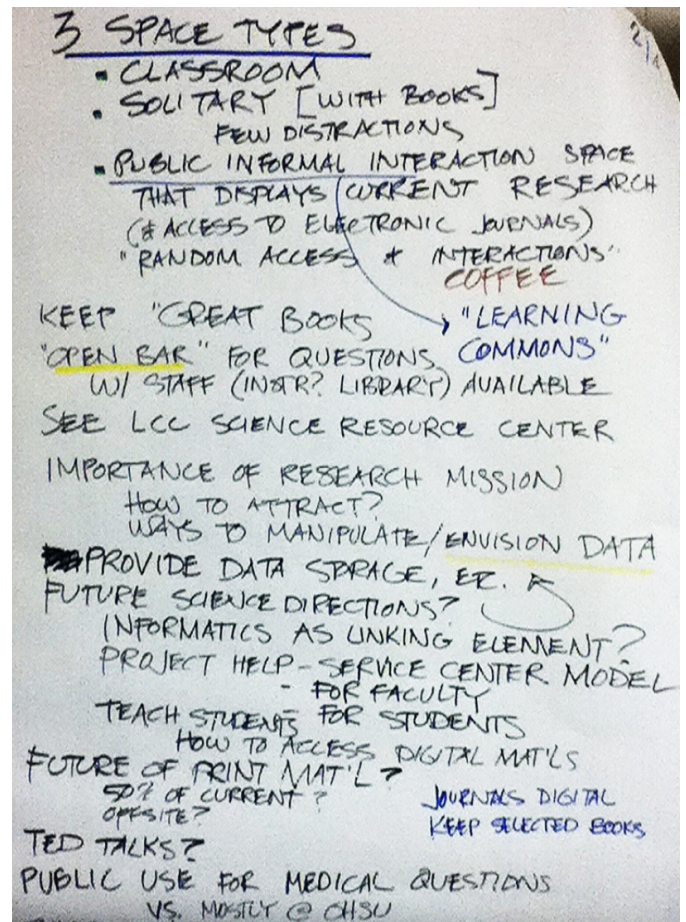 3 SPACE TYPES
2/
▪ CLASSROOM
▪ SOLITARY [WITH BOOKS]
FEW DISTRACTIONS
▪ PUBLIC INFORMAL INTERACTION SPACE
THAT DISPLAYS CURRENT RESEARCH
(& ACCESS TO ELECTRONIC JOURNALS)
"RANDOM ACCESS & INTERACTIONS"
COFFEE
KEEP "GREAT BOOKS
"LEARNING
COMMONS"
"OPEN BAR" FOR QUESTIONS
W/ STAFF (INSTR? LIBRARY) AVAILABLE
SEE LCC SCIENCE RESOURCE CENTER
IMPORTANCE OF RESEARCH MISSION
HOW TO ATTRACT?
WAYS TO MANIPULATE/ENVISION DATA
PROVIDE DATA STORAGE, ETC.
FUTURE SCIENCE DIRECTIONS?
INFORMATICS AS LINKING ELEMENT?
PROJECT HELP - SERVICE CENTER MODEL
- FOR FACULTY
- FOR STUDENTS
TEACH STUDENTS
HOW TO ACCESS DIGITAL MAT'LS
FUTURE OF PRINT MAT'L?
50% OF CURRENT?
OFFSITE?
JOURNALS DIGITAL
KEEP SELECTED BOOKS
TED TALKS?
PUBLIC USE FOR MEDICAL QUESTIONS
VS. MOSTLY @ OHSU